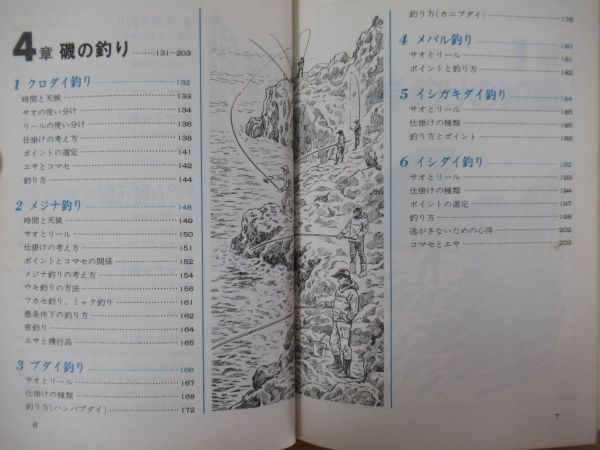 4章 磯の釣り ……131~203
1 クロダイ釣り……132
時間と天候……133
サオの使い分け……134
リールの使い分け……136
仕掛けの考え方……138
ポイントの選定……141
エサとコマセ……142
釣り方……144
2 メジナ釣り……148
時間と天候……149
サオとリール……150
仕掛けの考え方……151
ポイントとコマセの関係……152
メジナ釣りの考え方……154
ウキ釣りの方法……156
フカセ釣り、ミャク釣り……161
悪条件下の釣り方……162
夜釣り……164
エサと携行品……165
3 ブダイ釣り……166
サオとリール……167
仕掛けの種類……168
釣り方(ハンバブダイ)……172
6
釣り方(カニブダイ)……176
4 メバル釣り……180
サオとリール……181
ポイントと釣り方……182
5 イシガキダイ釣り……184
サオとリール……185
仕掛けの種類……186
釣り方とポイント……188
6 イシダイ釣り……192
サオとリール……193
仕掛けの種類……194
ポイントの選定……197
釣り方……198
逃がさないための心得……202
コマセとエサ……203
7